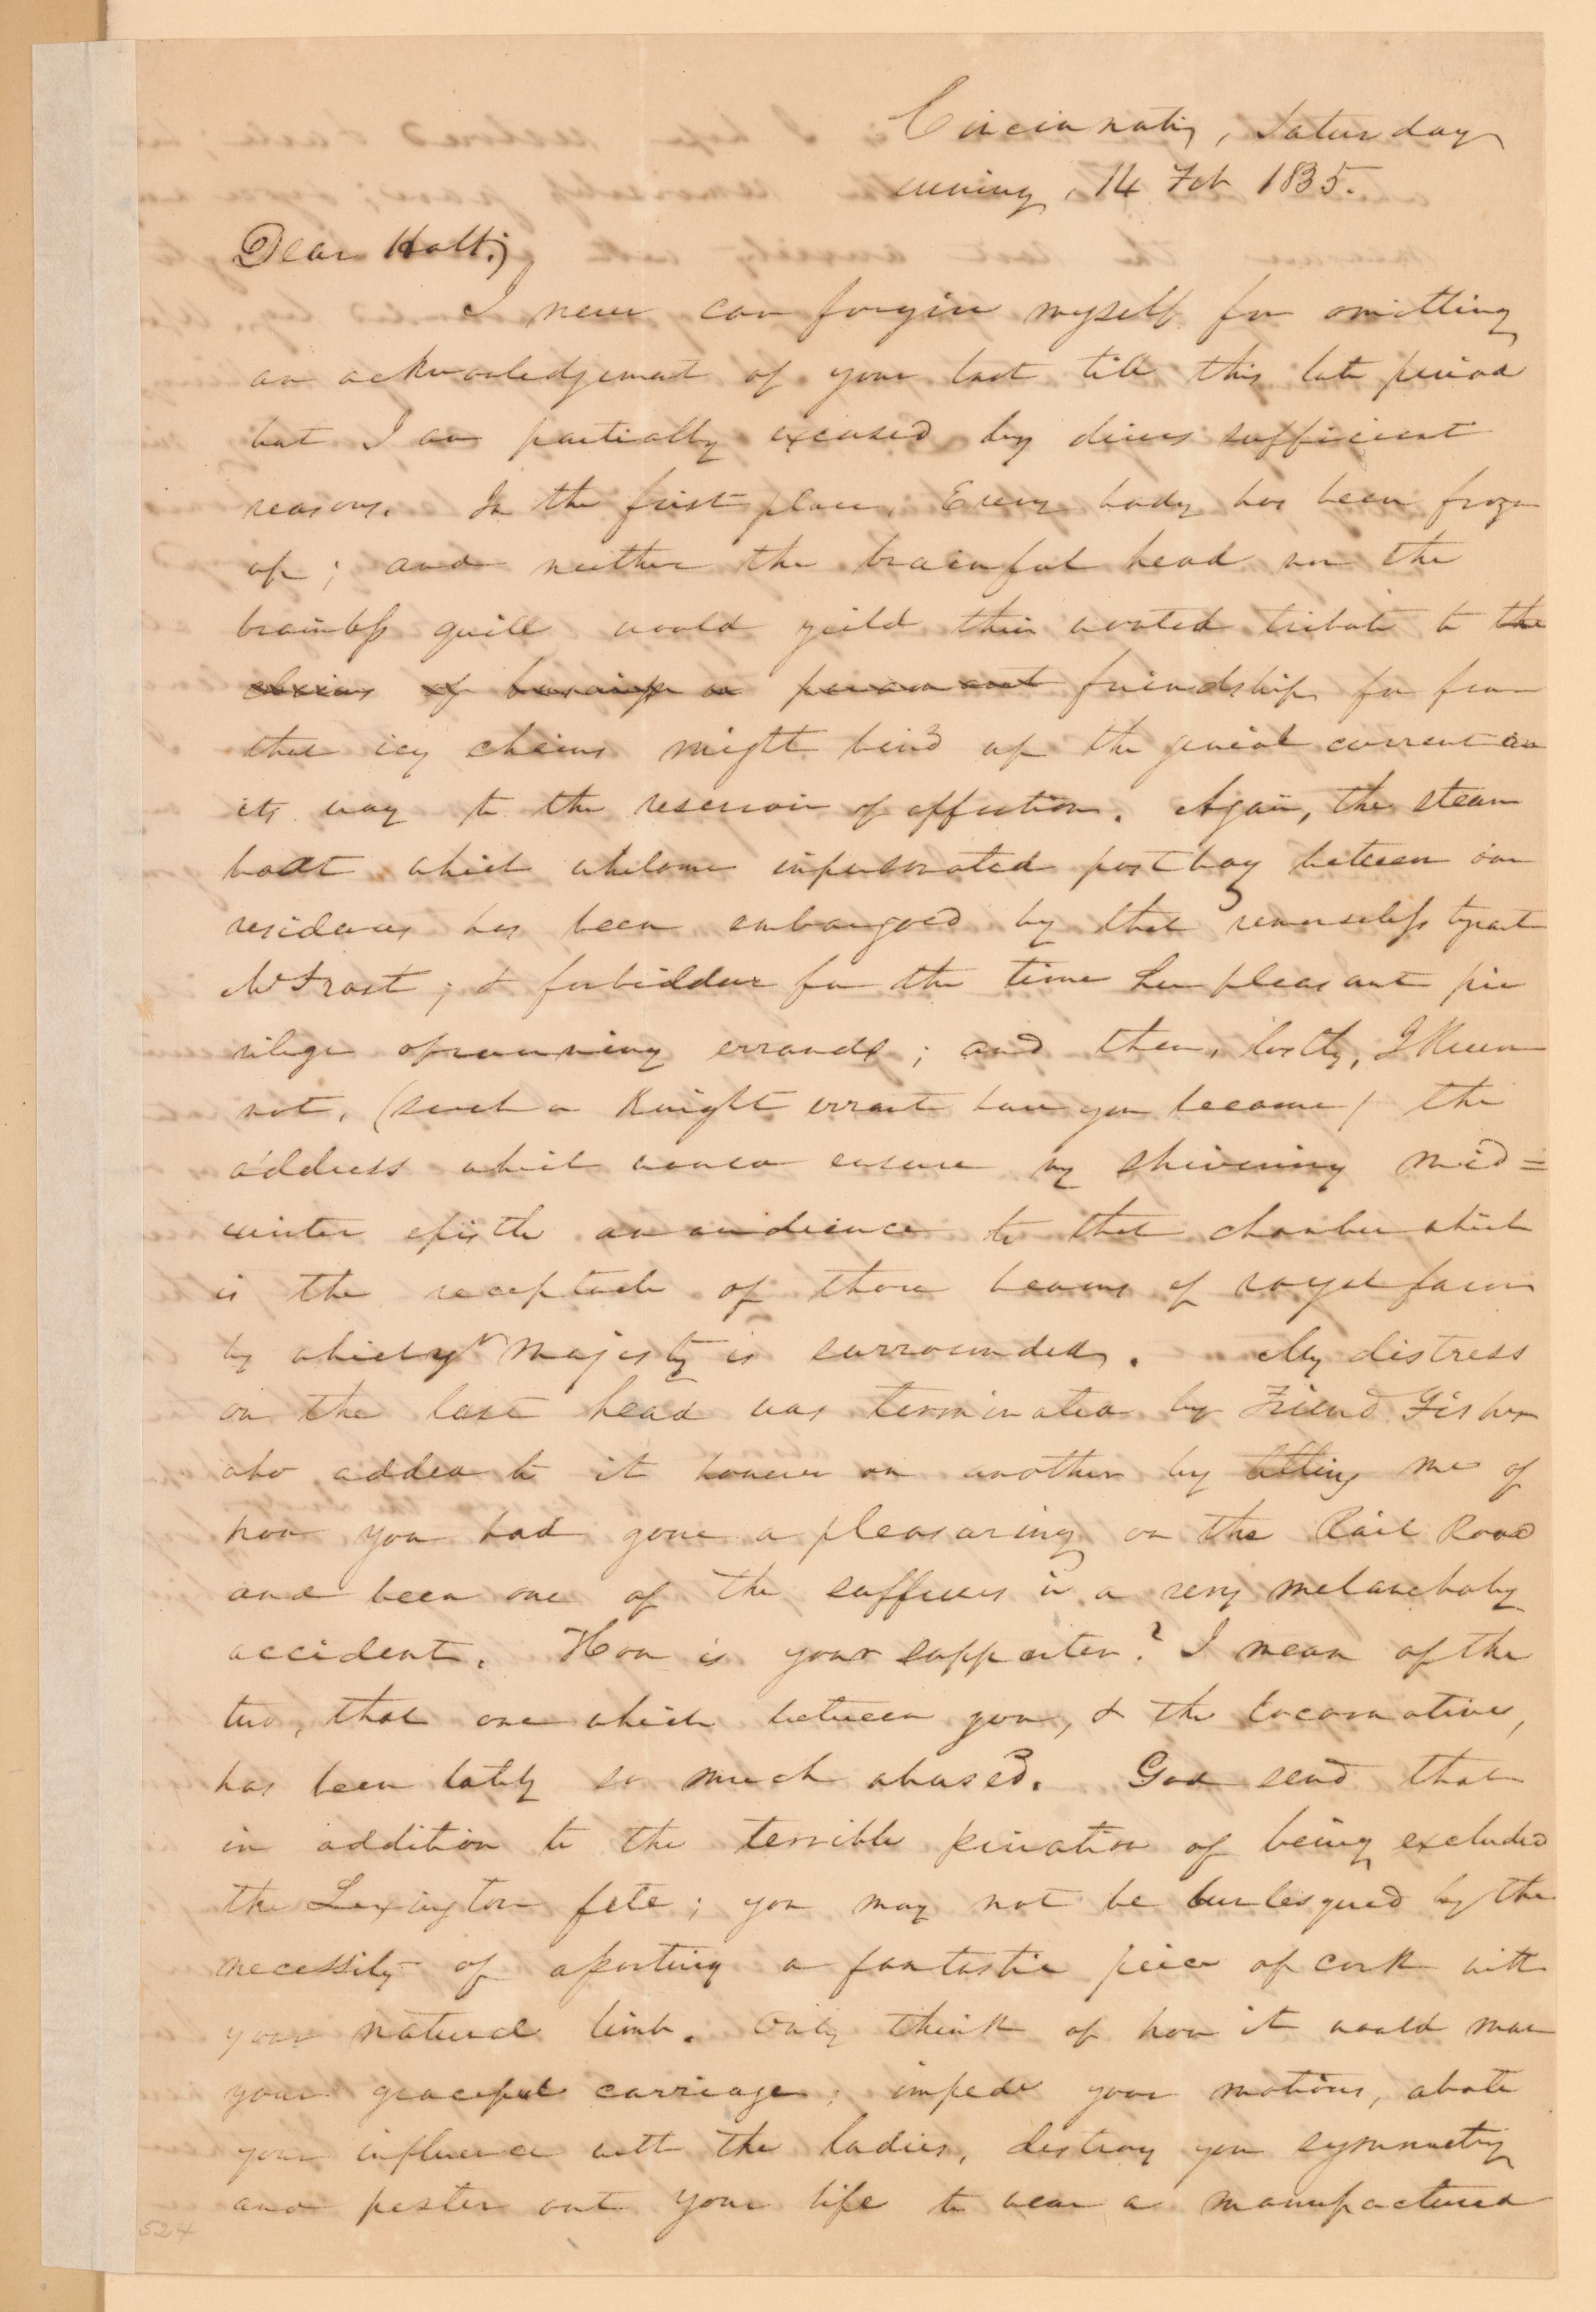 Cincinnati, Saturday
evening, 14 Feb 1835.
Dear Holt;
I never can forgive myself for omitting
an acknowledgement of your last till this late period
but I am partially excused by divers sufficient
reasons. In the first place, Every body has been froze
up; and neither the brainful head nor the
brainless quill would yeild their wonted tribute to the
friendship for fear
that icy chains might bind up the genial current on
its way to the reservoir of affection. Again, the steam
boat which whilome impersonated post boy between our
residences has been embargoed by that remorseless tyrant
Mr Frost; & forbidden for the time her pleasant pri
vilege of running errands; and then, lastly, I knew
not, (such a Knight errant have you become) the
address which would ensure my shivering mid=
winter epistle an audience to that chamber which
is the receptacle of those beams of royal favor
by which yr Majesty is surrounded. My distress
on the last head was terminated by Friend Fisher
who added to it however on another by telling me of
how you had gone a pleasuring on the Rail Road
and been one of the sufferers in a very melancholy
accident. How is your supporter? I mean of the
two, that one which between you, & the locomotives,
has been lately so much abused. God send that
in addition to the terrible privation of being excluded
the Lexington fete; you may not be burlesqued by the
necessity of sporting a fantastic piece of cork with
your natural limb. Only think of how it would mar
your graceful carriage; impede your motions, abate
your influence with the ladies, destroy your symmetry
and pester out your life to wear a manufactured
524